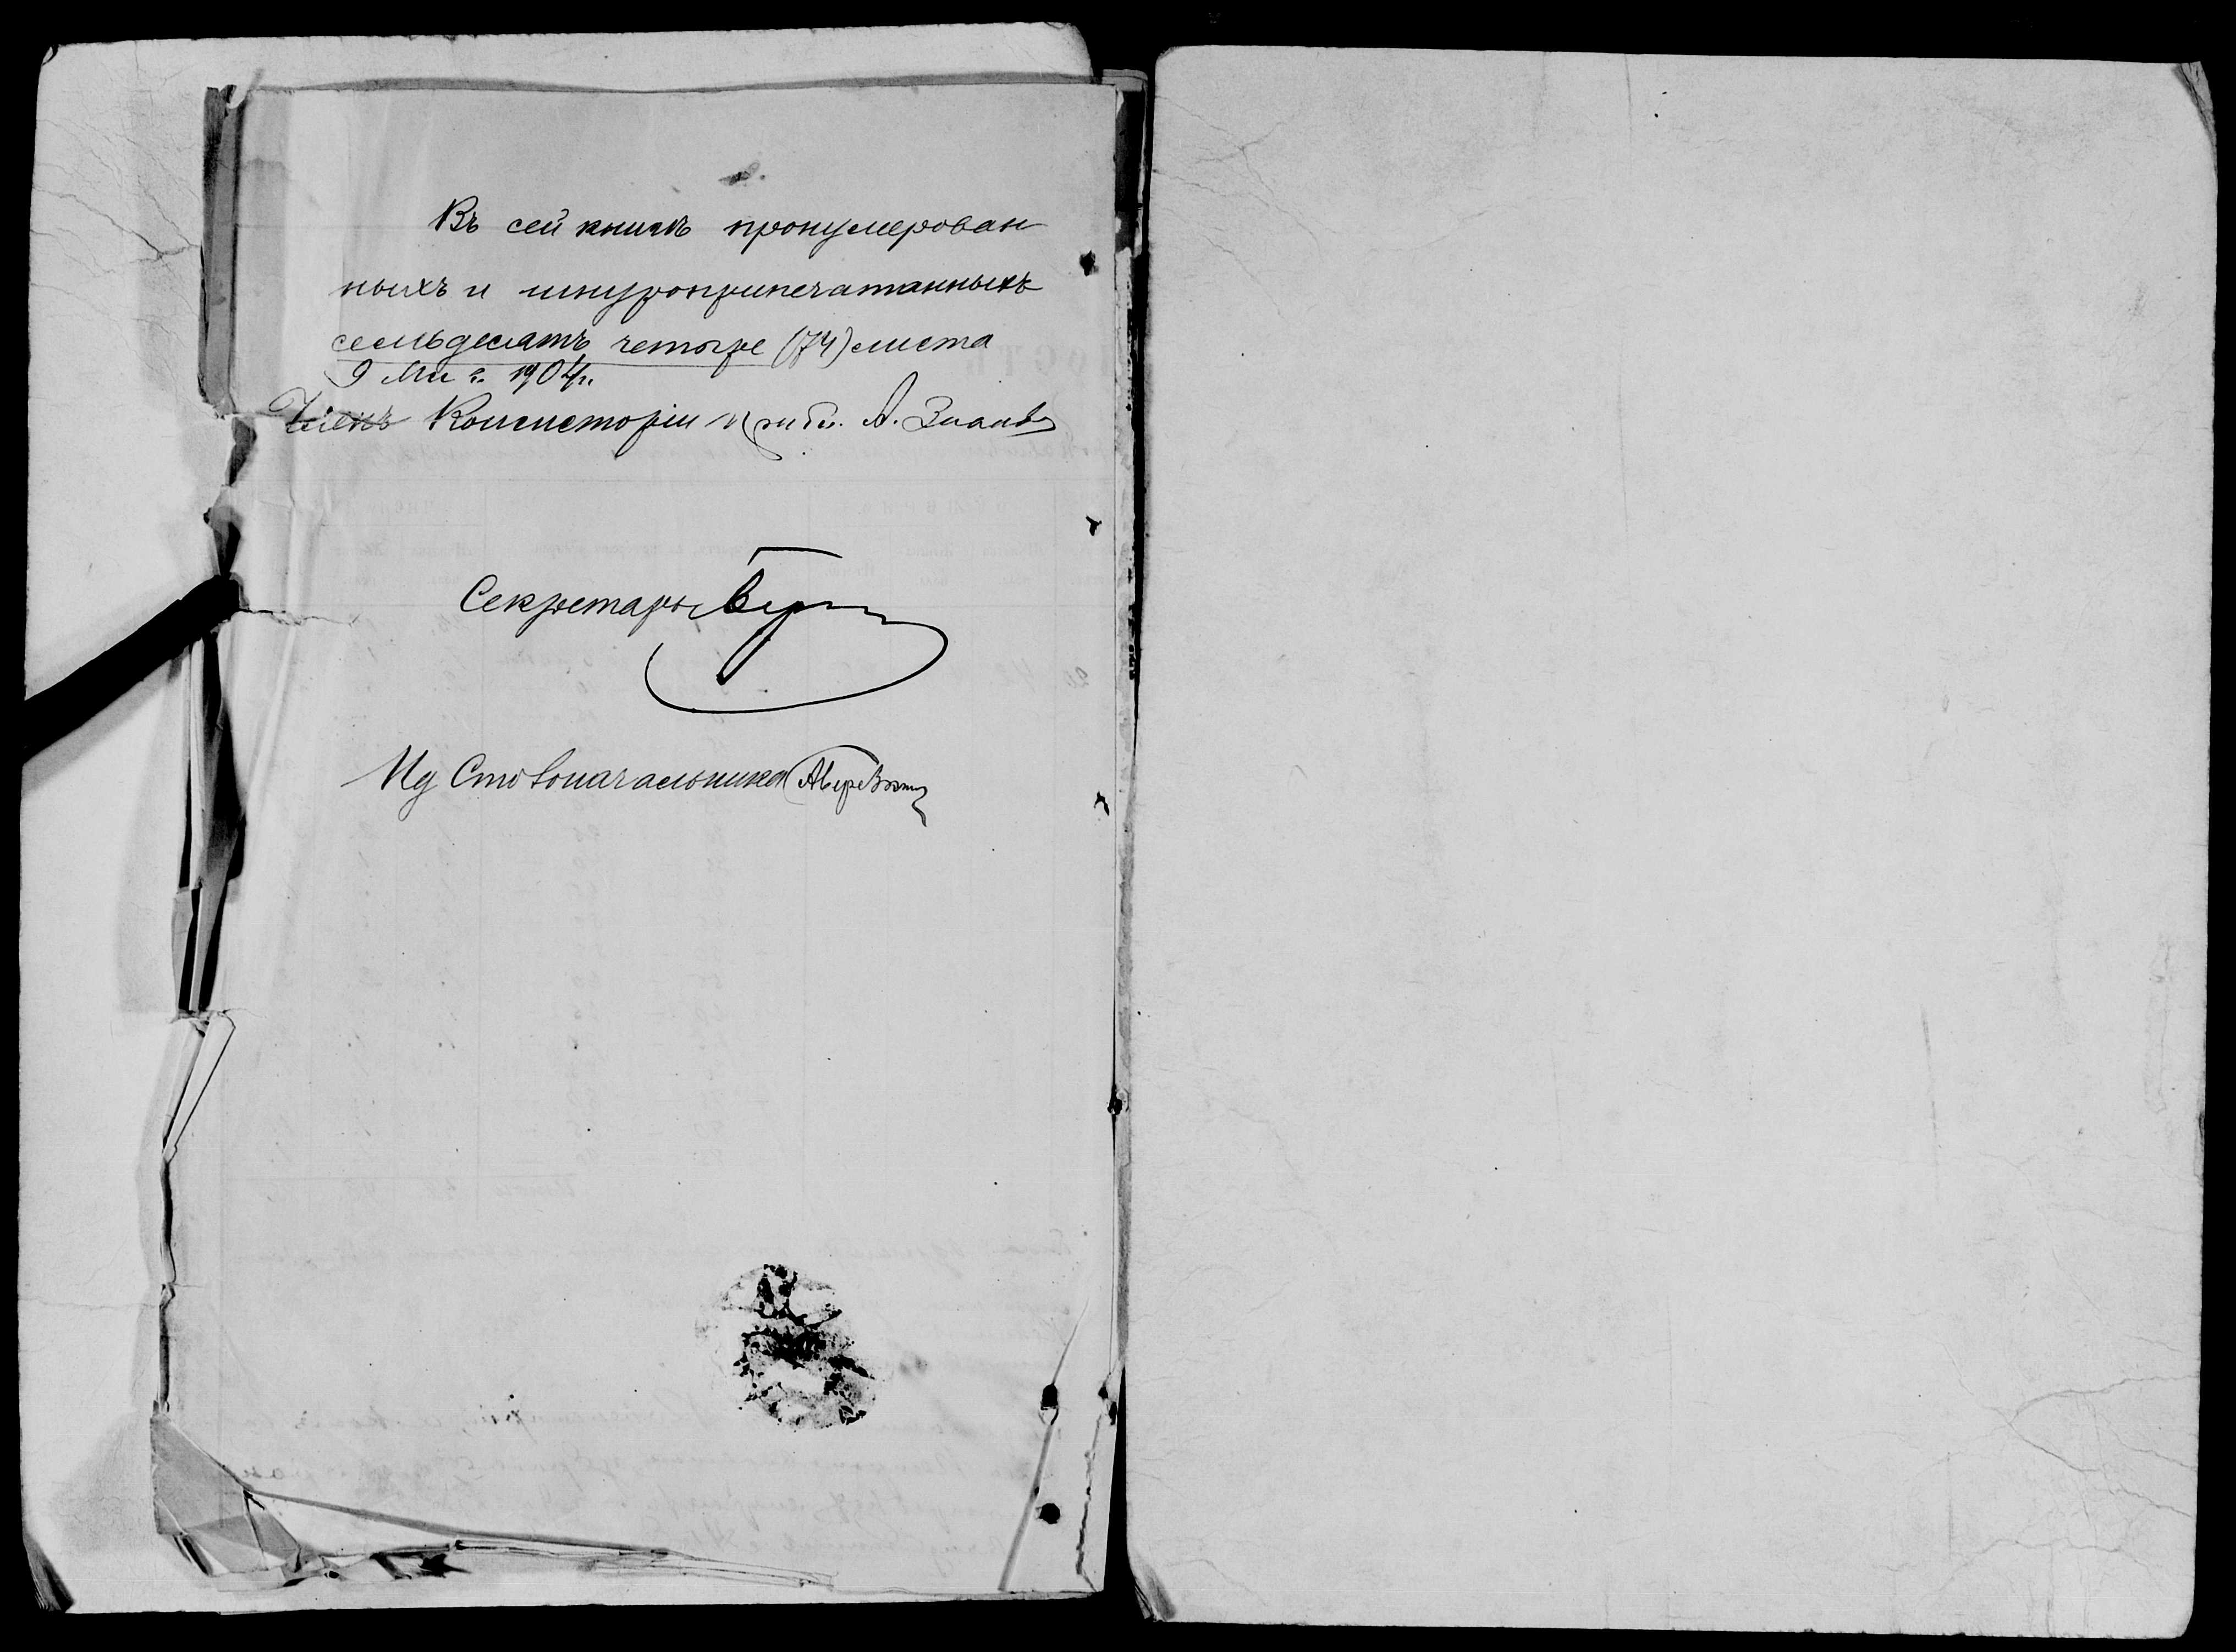 Въ сей книгѣ пронумерован
ныхъ и шнуроприпечатанныхъ
семьдесятъ четыре (74) листа
9 1904 г.
Членъ Консисторіи А.
Секретарь
Ид Столоначальника